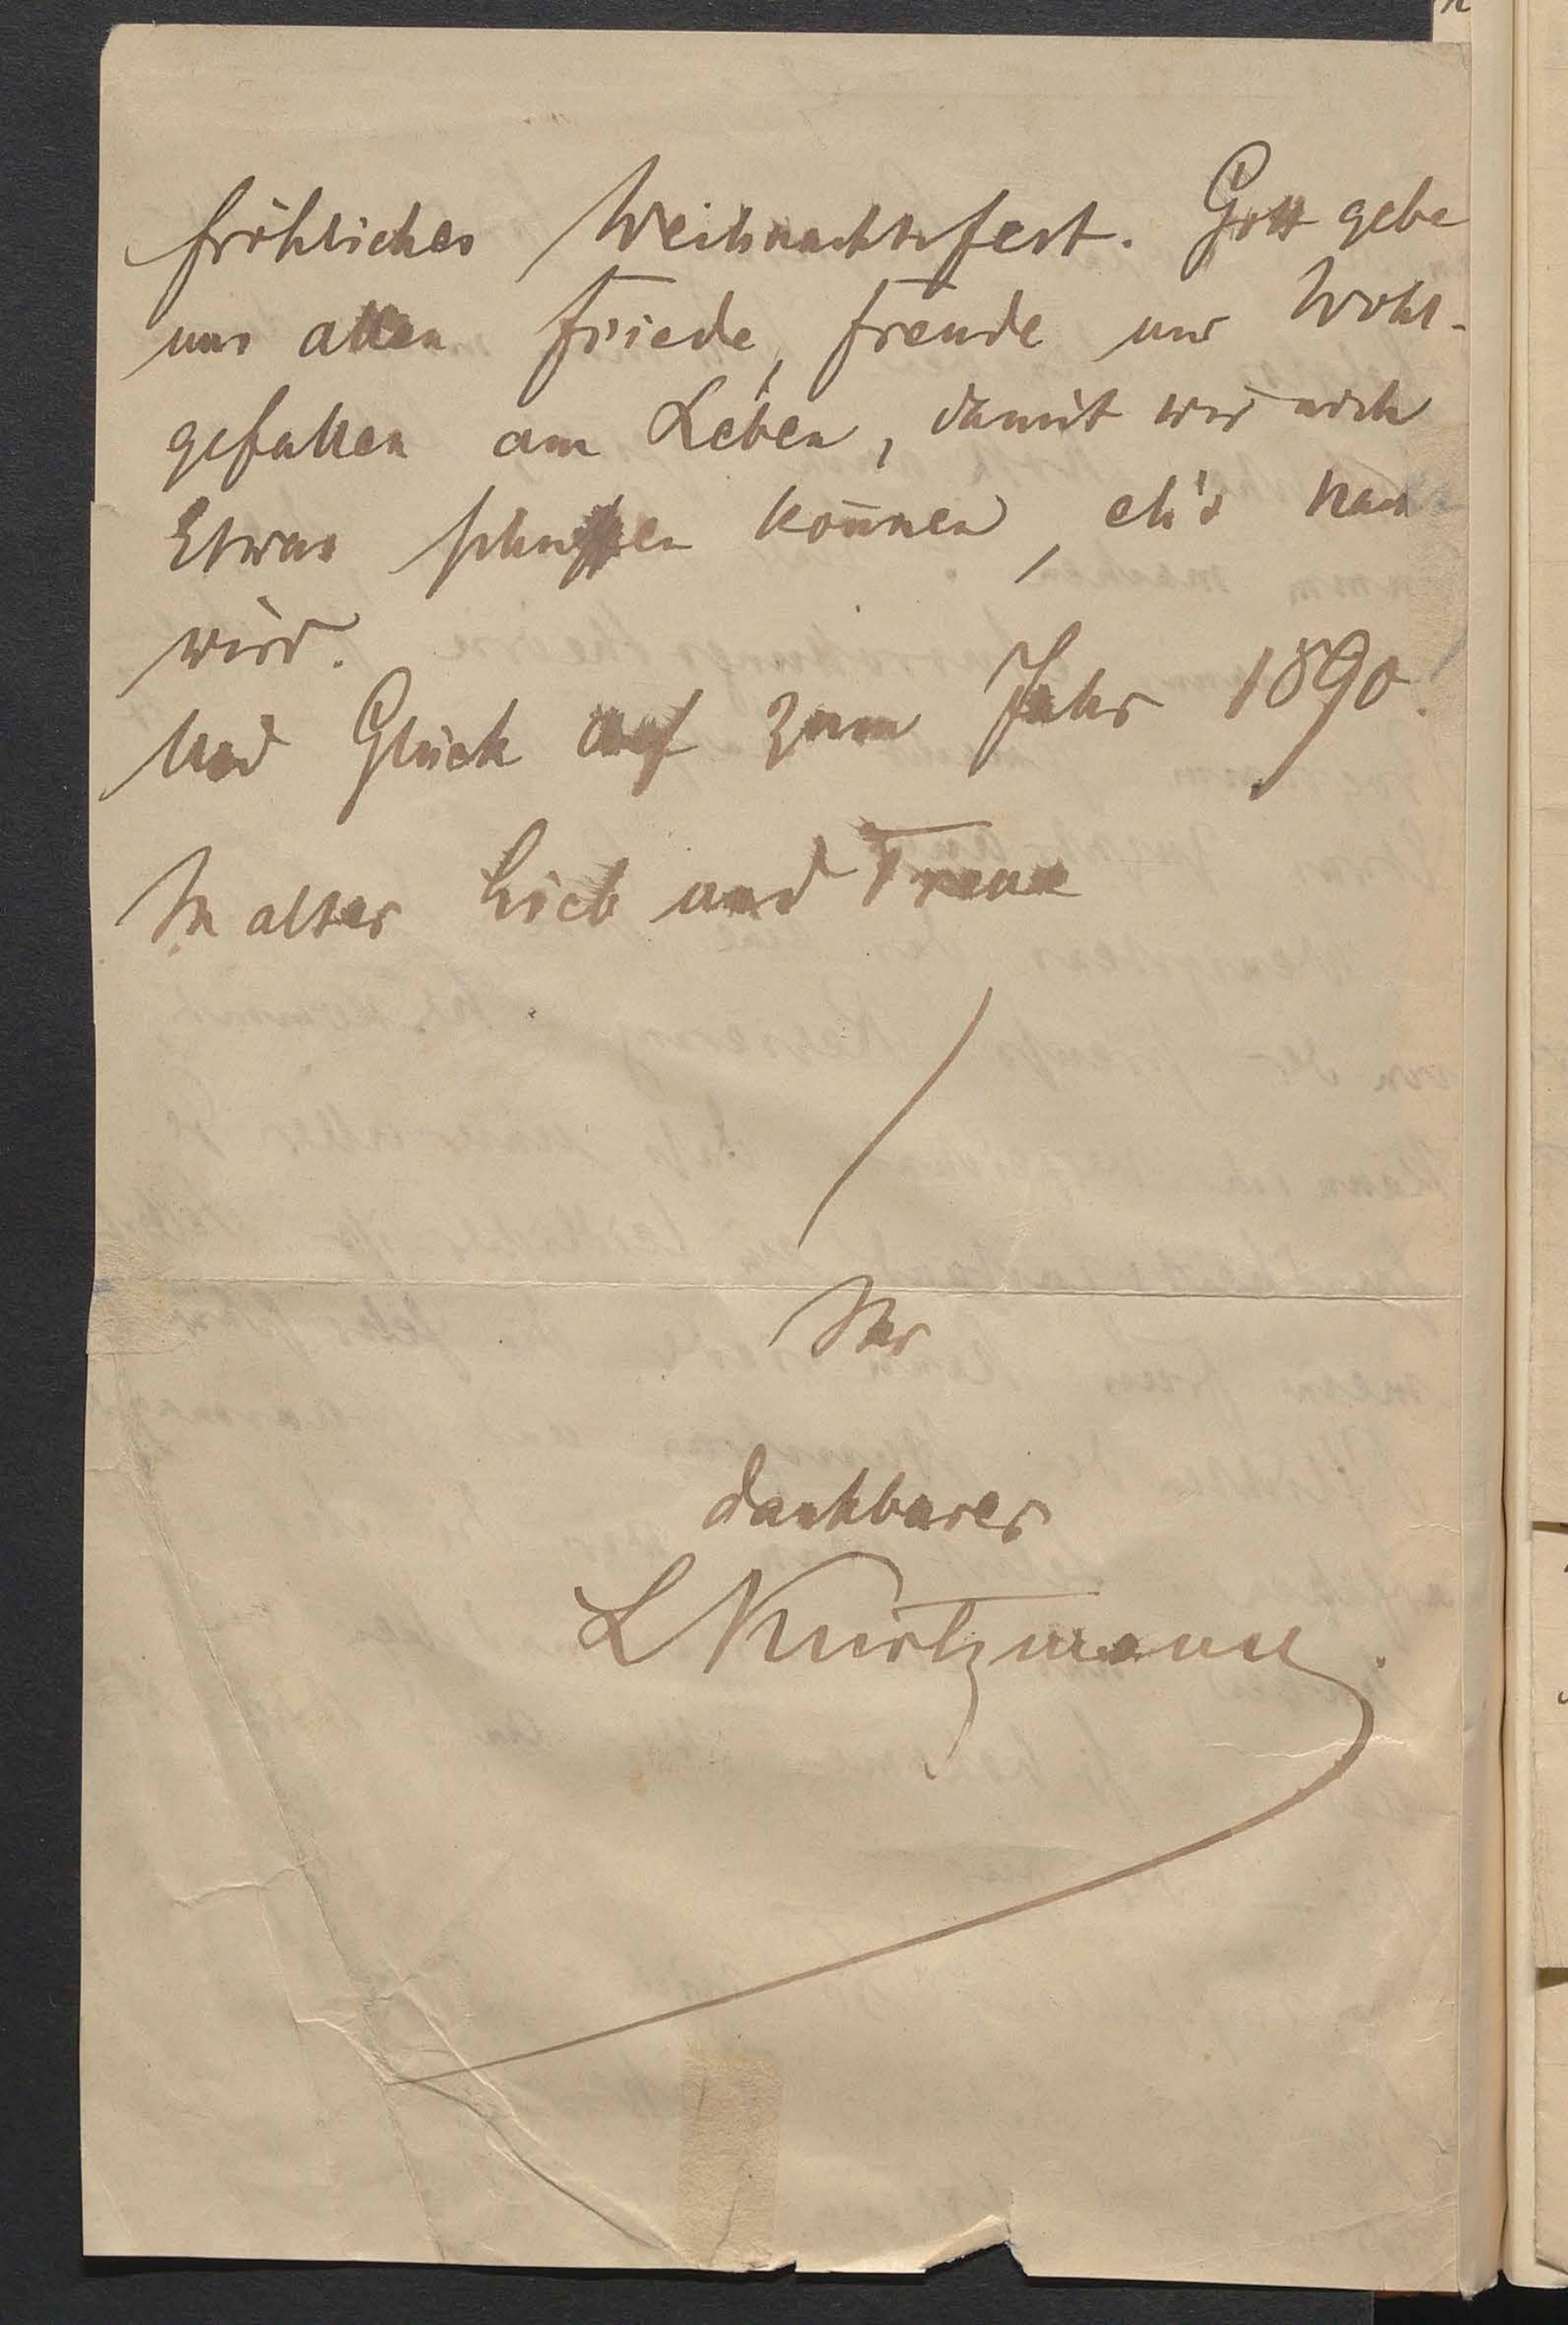 fröhliches Weihnachtsfest. Gott gebe
uns allen Friede, Freude und Wohl-
gefallen am Leben, damit wir noch
Etwas schaffen können, eh's Nacht
wird.
Und Glück auf zum Jahr 1890!
In alter Lieb und Treue
Ihr
dankbarer
L Kurtzmann.